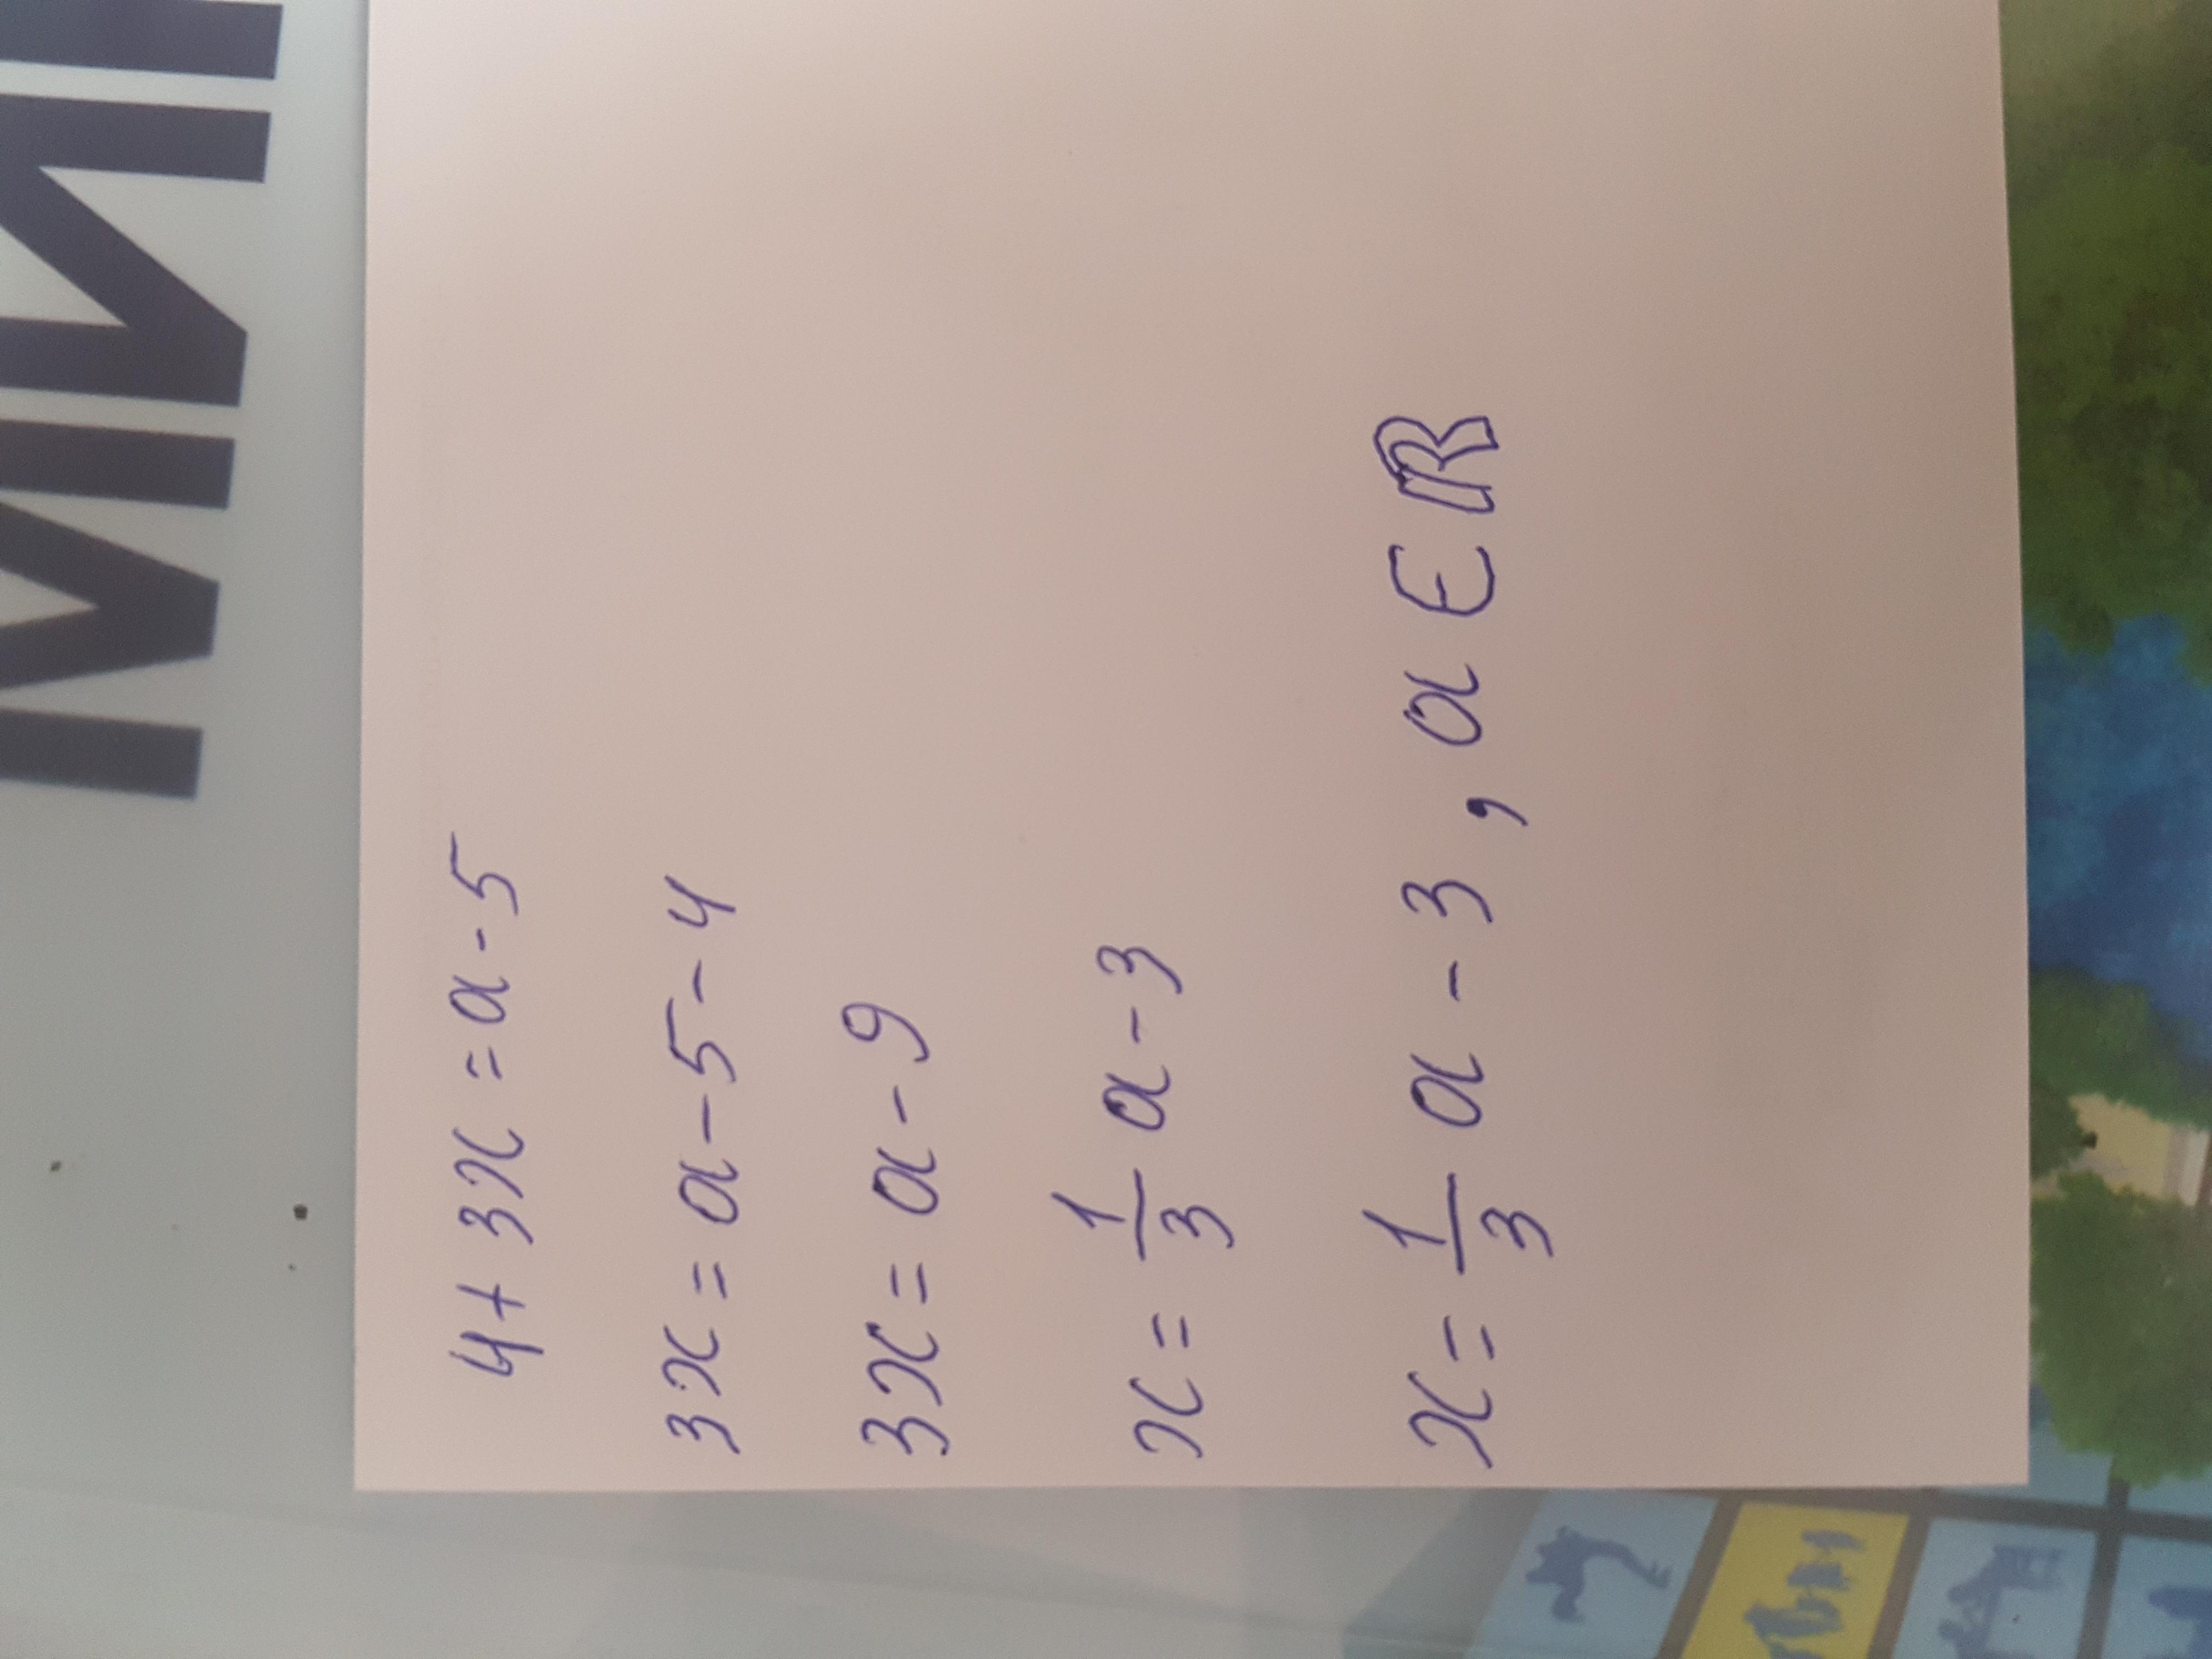 4 + 3x = a - 5
3x = a - 5 - 4
3x = a - 9
x = \frac{1}{3} a - 3
x = \frac{1}{3} a - 3 , a ∈ ℝ